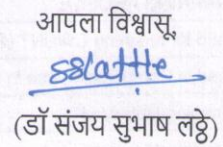 आपला विश्वासू,
sslatthe
(डॉ संजय सुभाष लठ्ठे)